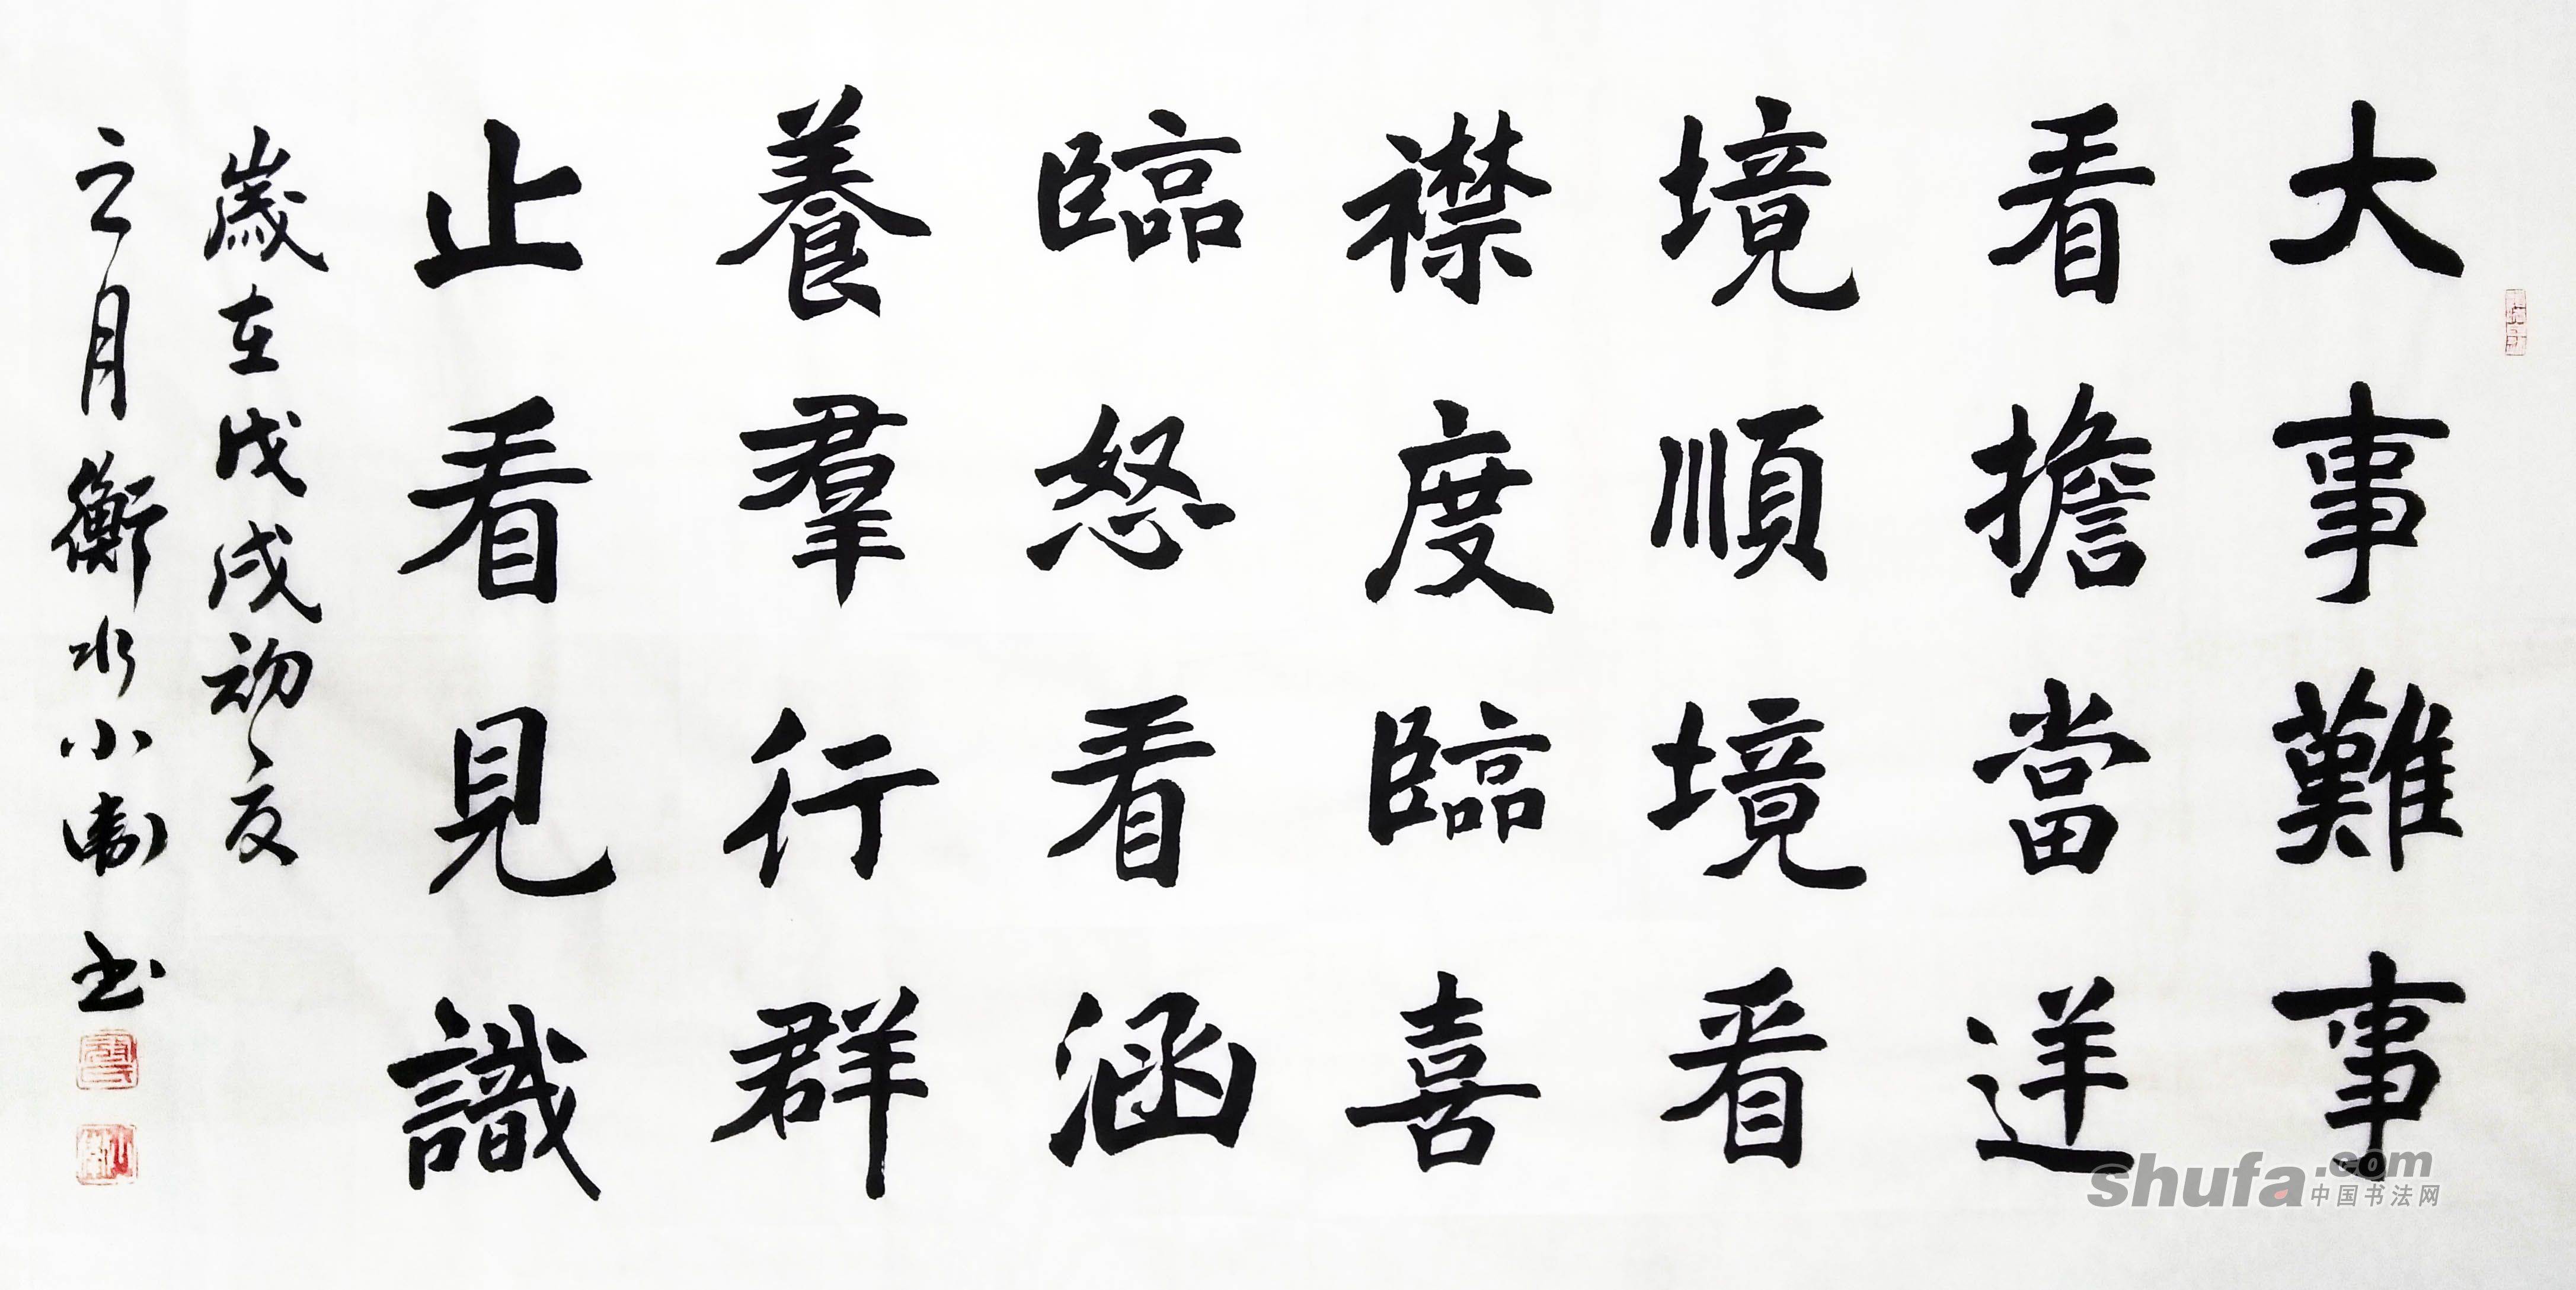 大事難事
看擔當逆
境順境看
襟度臨喜
臨怒看涵
養羣行群
止看見識
歲在戊戌初夏
之月衡水小衛书
shufa.com
中国书法网